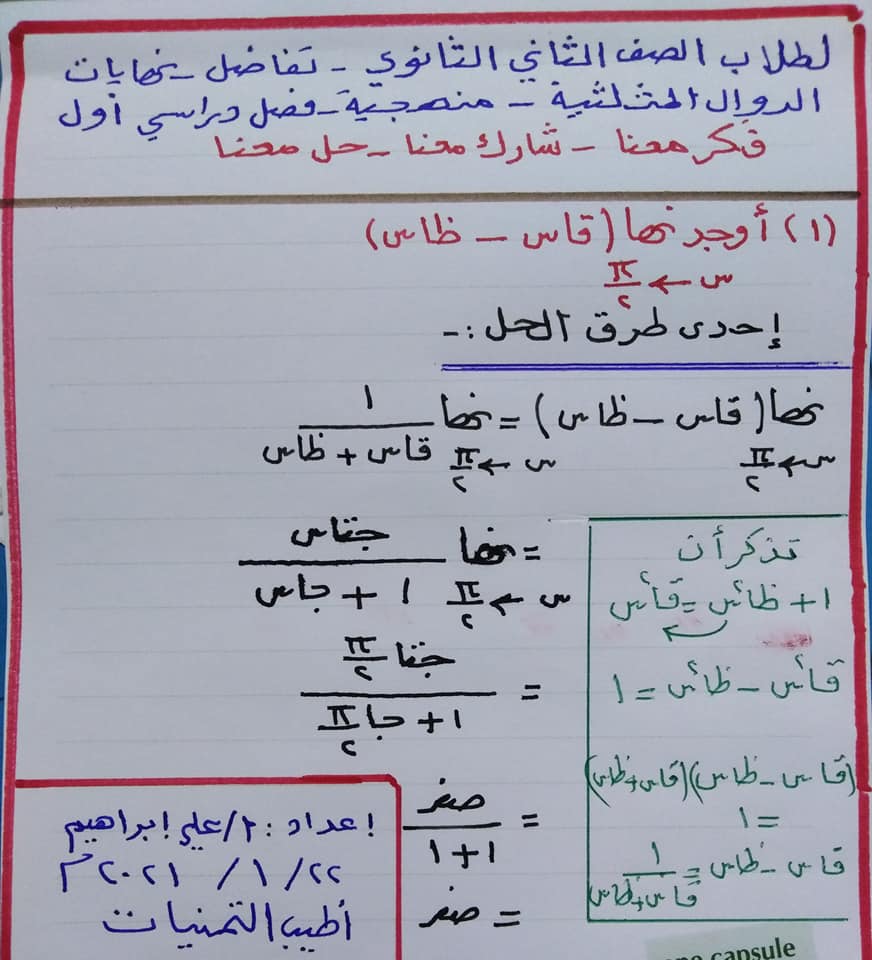 لطلاب الصف الثاني الثانوي - تفاضل - نهايات
الدوال المثلثية - منهجية - فصل دراسي أول
فكر معنا - شارك معنا - حل معنا
(١) أوجد نها (قاس - ظاس)
س ← π/٢
إحدى طرق الحل :-
نها (قاس - ظاس) = نها ١/(قاس + ظاس)
س ← π/٢ س ← π/٢
= نها جتاس/(١ + جاس)
س ← π/٢
= جتا π/٢ / (١ + جا π/٢)
= صفر/(١+١)
= صفر
تذكر أن
١ + ظا٢س = قا٢س
قا٢س - ظا٢س = ١
(قاس - ظاس)(قاس + ظاس)
= ١
قاس - ظاس = ١/(قاس + ظاس)
إعداد : ٢/علي إبراهيم
٢٢ / ١ / ٢٠٢١ م
أطيب التمنيات
capsule